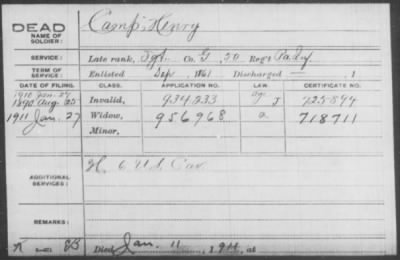 DEAD
NAME OF SOLDIER: Camp, Henry
SERVICE: Late rank, Sgt. Co. G, 50 Reg't Pa. Inf
TERM OF SERVICE: Enlisted Sep 1861 Discharged — , 1
DATE OF FILING. CLASS. APPLICATION NO. LAW. CERTIFICATE NO.
1890 Aug. 25 Invalid, 934233 J 725894
1911 Jan. 27 Widow, 956968 a 718711
Minor,
ADDITIONAL SERVICES: H. 6 U.S. Cav.
REMARKS:
Died Jan. 11, 1911, at